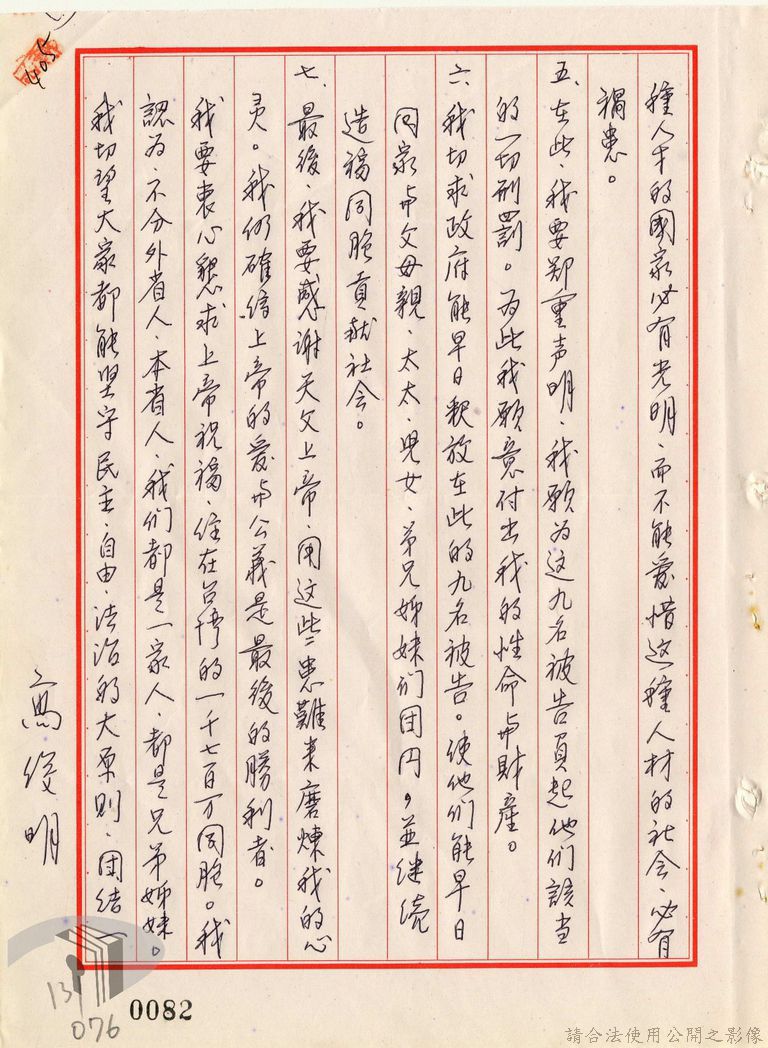 種人才的國家必有光明、而不能爱惜这種人材的社会、必有
禍患。
五、在此、我要郑重声明、我願为这九名被告負起他们該当
的一切刑罰。为此我願意付出我的性命与財産。
六、我切求政府能早日釈放在此的九名被告。使他们能早日
回家与父母親、太太、児女、弟兄姊妹们团円，並继续
造福同胞貢献社会。
七、最後、我要感谢天父上帝、用这些患難来磨煉我的心
灵。我仍確信上帝的爱与公義是最後的勝利者。
我要衷心懇求上帝祝福、住在台湾的一千七百万同胞。我
認为、不分外省人、本省人、我们都是一家人、都是兄弟姊妹。
我切望大家都能坚守民主、自由、法治的大原則、团结一
高俊明
405
131
076
0082
請合法使用公開之影像